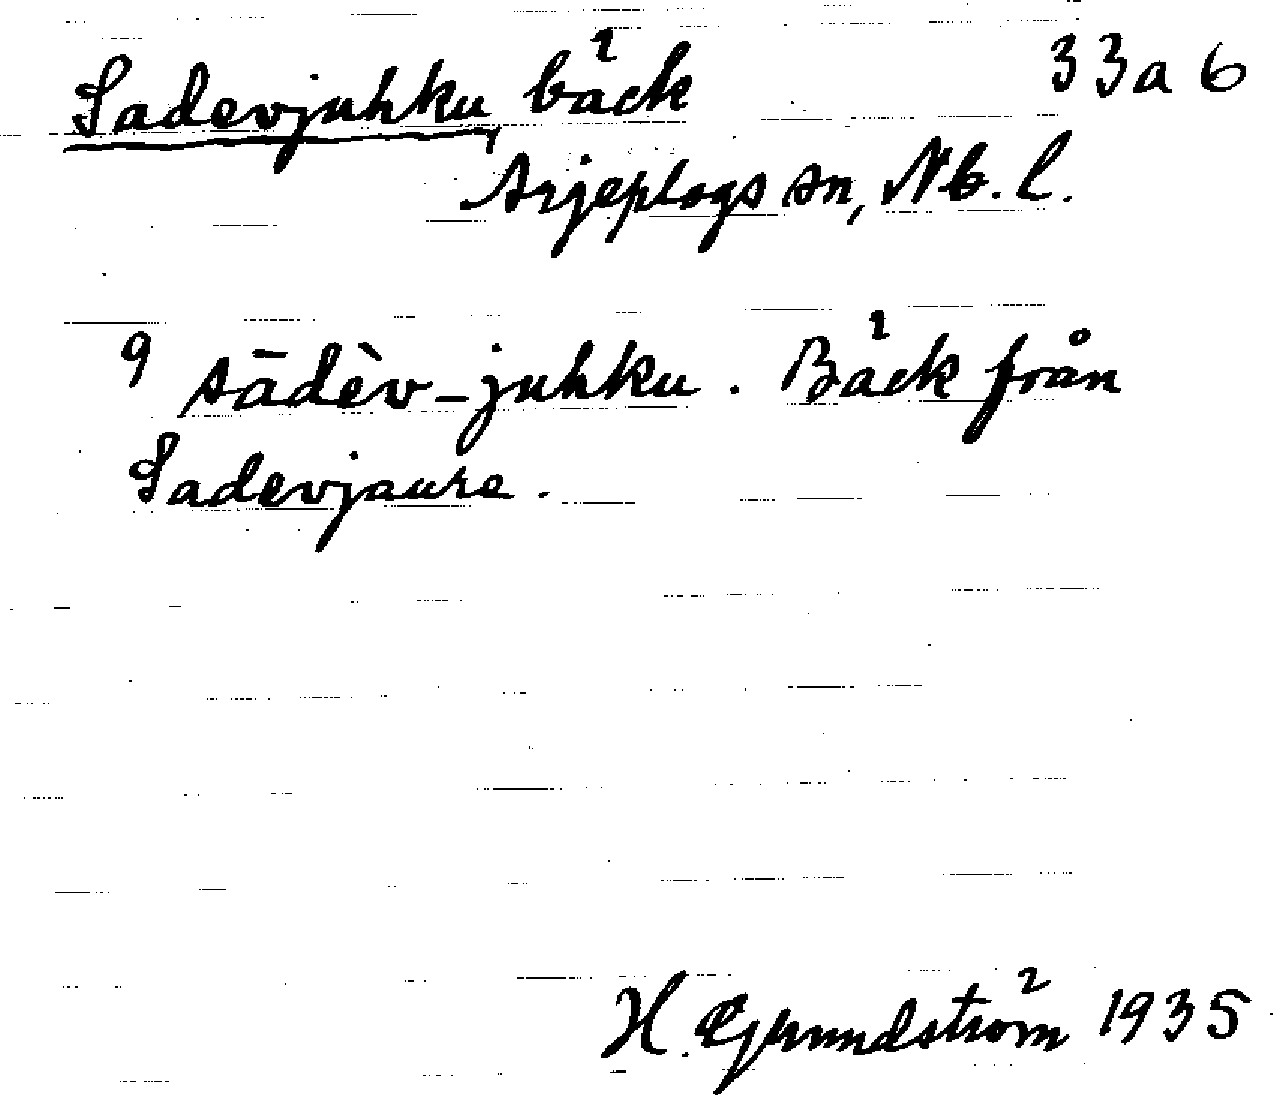 Sadevjuhku, bäck 33a 6
Arjeplogs sn, Nb. l.
9 sādèv-juhku. Bäck från
Sadevjaure.
H. Grundström 1935